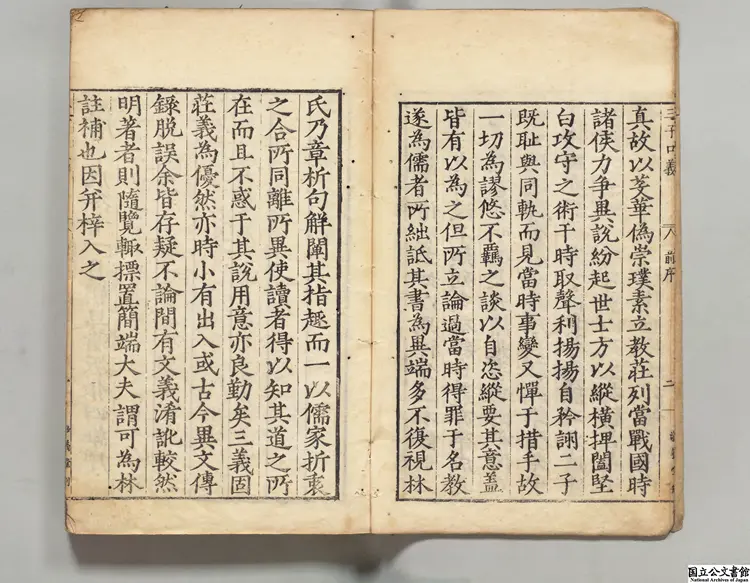 真故以芟華偽崇璞素立教莊列當戰國時
諸侯力爭異說紛起世士方以縱橫捭闔堅
白攻守之術干時取聲利揚揚自矜詡二子
既耻與同軌而見當時事變又憚于措手故
一切為謬悠不羈之談以自恣縱要其意蓋
皆有以為之但所立論過當時得罪于名教
遂為儒者所絀詆其書為異端多不復視林
三子口義
前序
二
氏乃章析句解闡其指趣而一以儒家折衷
之合所同離所異使讀者得以知其道之所
在而且不惑于其說用意亦良勤矣三義固
莊義為優然亦時小有出入或古今異文傳
錄脫誤余皆存疑不論間有文義淆訛較然
明著者則隨覽輙摽置簡端大夫謂可為林
註補也因并梓入之
国立公文書館
National Archives of Japan